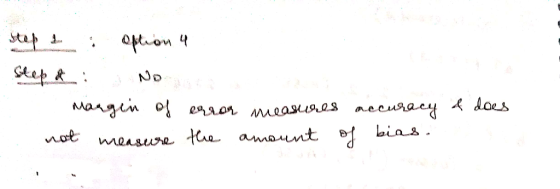 Step 1 : Option 4
Step 2 : No
Margin of error measures accuracy & does
not measure the amount of bias.